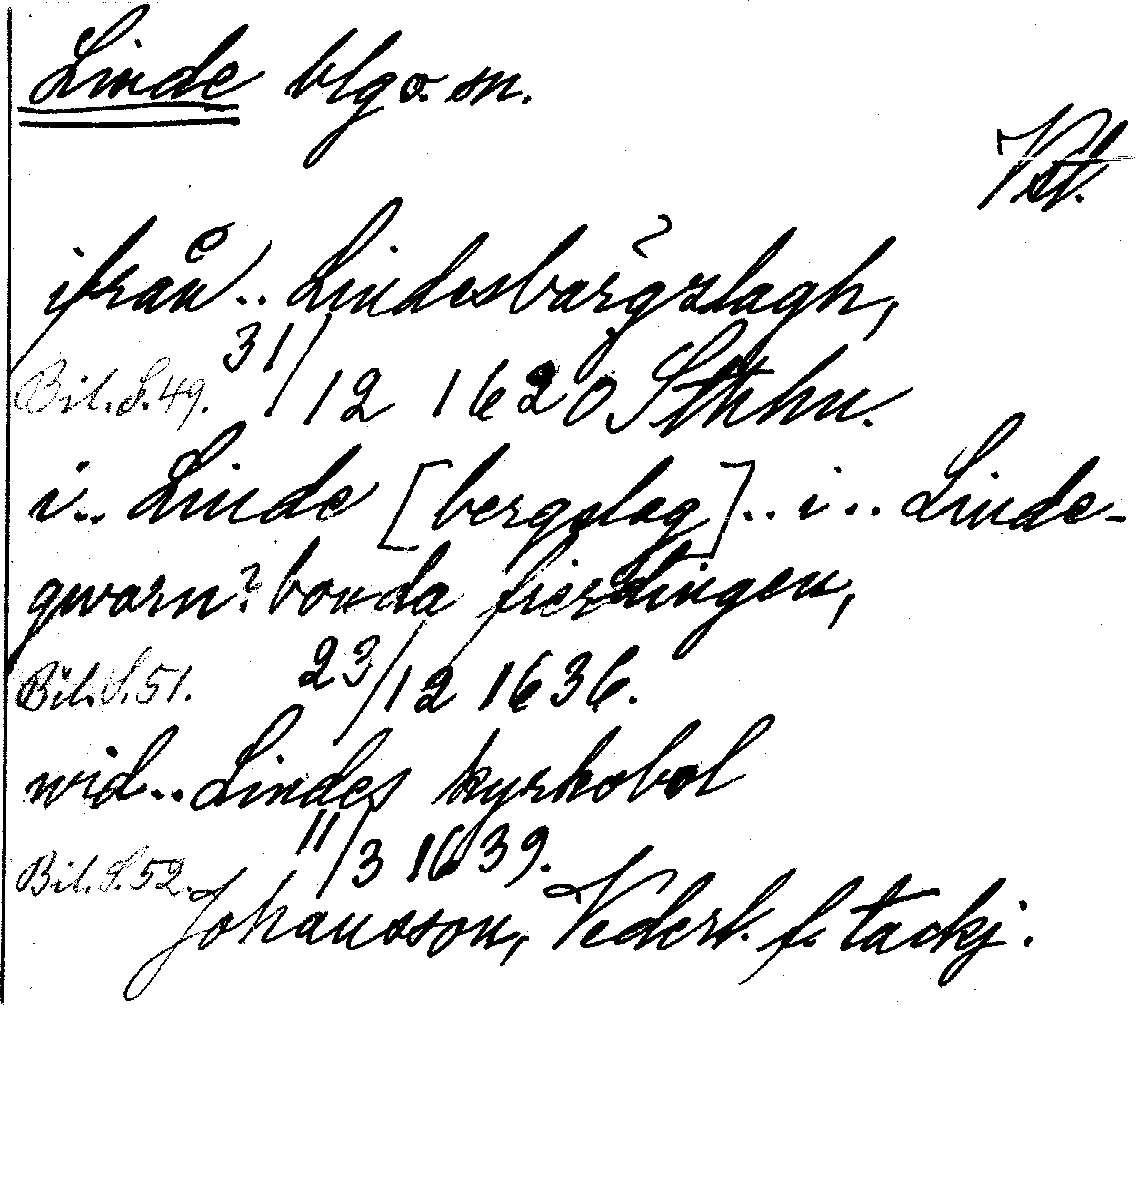 Linde blgo. sn.
Vstl.
ifrån.. Lindesbärgzlagh,
Bil. S. 49. 31/12 1620 Sthhn.
i.. Linde [bergslag].. i.. Linde-
qwarn? bonda fierdingen,
Bil. S. 51. 23/12 1636.
wid.. Lindes kyrkobol
Bil. S. 52. 11/3 1639.
Johansson, Vederl. f. tackj.